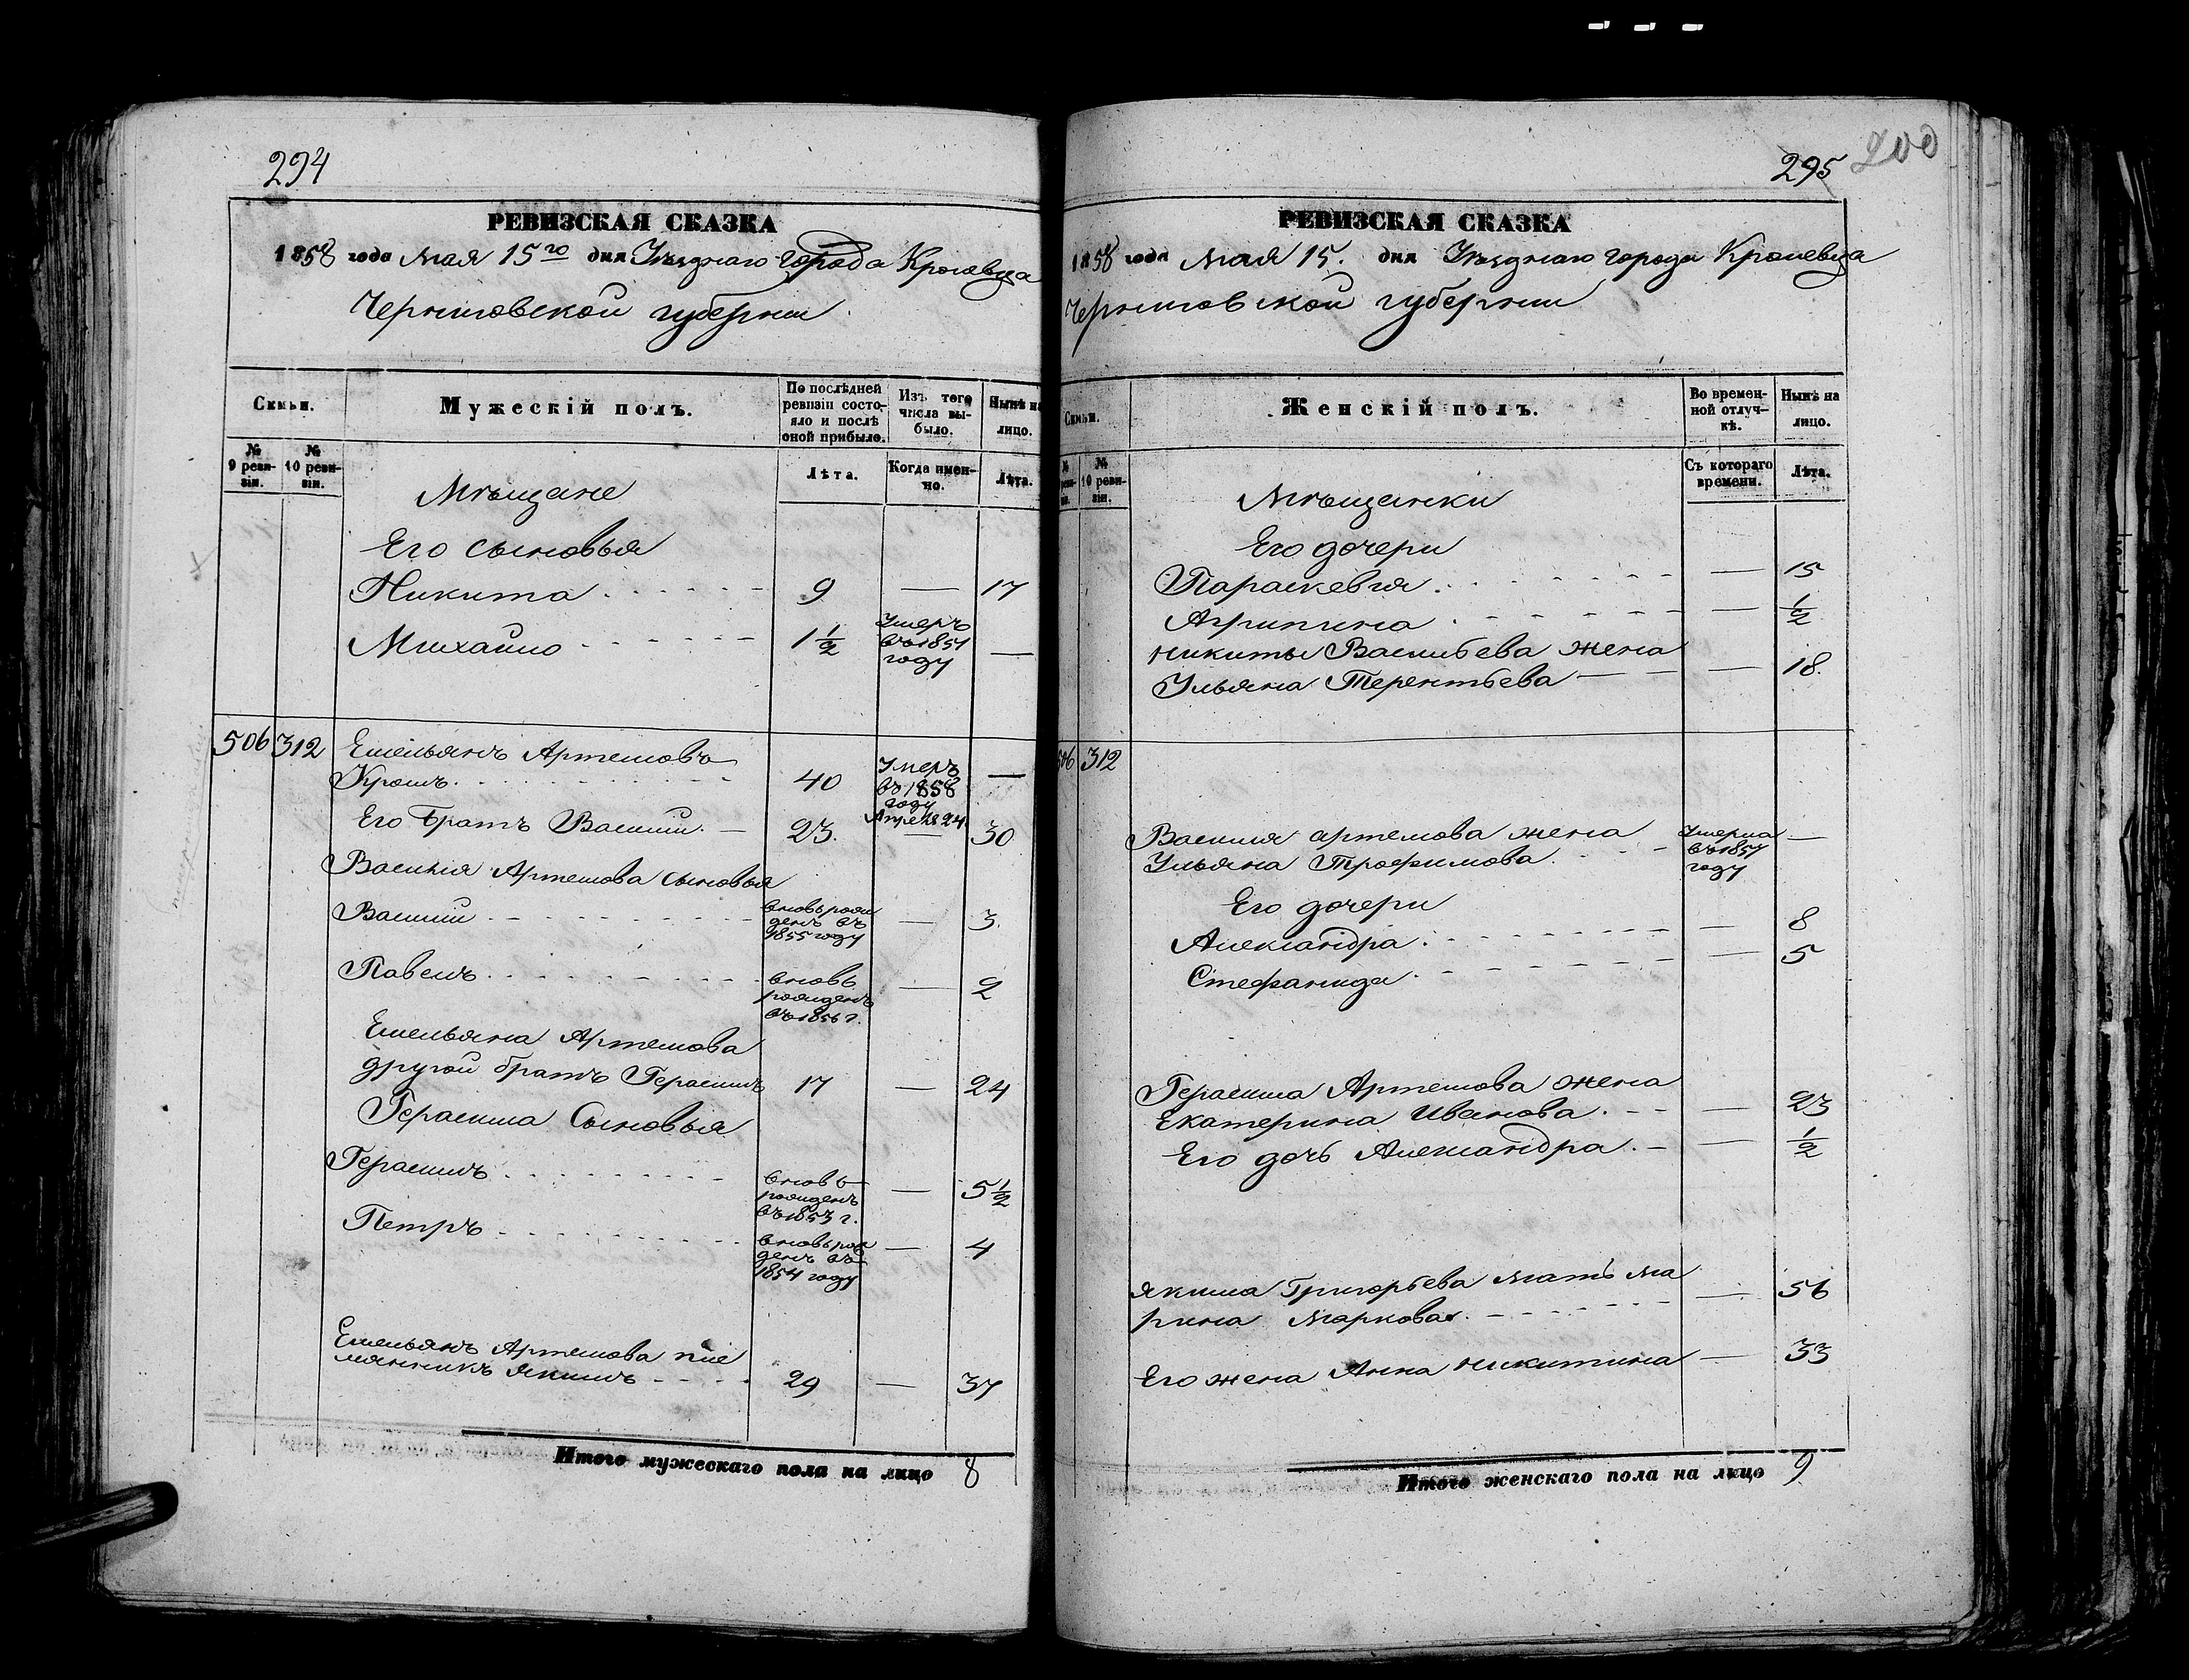 294
РЕВИЗСКАЯ СКАЗКА
1858 года мая 15го дня Уѣзднаго города Кролевца
Черниговской губернии
Семьи.
№ 9 ревизіи.
№ 10 ревизіи.
Мужескій полъ.
По послѣдней ревизіи состояло и послѣ оной прибыло.
Изъ того числа выбыло.
Нынѣ на лицо.
Лѣта.
Когда именно.
Лѣта.
Мѣщане
Его сыновья
Никита 9 — 17
Михайло 1½ Умеръ въ 1851 году —
506 312 Емельянъ Артемовъ
Кромъ 40 Умеръ въ 1858 году Апреля 24 —
Его братъ Василій. — 23. — 30
Василия Артемова сыновья
Василій вновь рожденъ въ 1855 году — 3.
Павелъ вновь рожденъ въ 1856 г. — 2
Емельяна Артемова
другой братъ Герасимъ 17 — 24
Герасима Сыновья
Герасимъ вновь рожденъ въ 1853 г. — 5½
Петръ вновь рожденъ въ 1854 году — 4
Емельянъ Артемова пле
мянникъ Якимъ 29 — 37
Итого мужескаго пола на лицо 8
295
200
РЕВИЗСКАЯ СКАЗКА
1858 года мая 15. дня Уѣзднаго города Кролевца
Черниговской губернии
Семьи.
№ 10 ревизіи.
Женскій полъ.
Во временной отлучкѣ.
Нынѣ на лицо.
Съ котораго времени.
Лѣта.
Мѣщанки
Его дочери
Параскевия — 15
Агрипина — ½
никиты Васильева жена
Ульяна Терентьева — 18.
506 312
Василия артемова жена
Ульяна Трофимова. Умерла въ 1857 году —
Его дочери
Александра — 8
Стефанида — 5
Герасима Артемова жена
Екатерина Иванова — 23
Его дочь Александра. — ½
Якима Григорьева мать Ма
рина Маркова — 56
Его жена Анна никитина — 33
Итого женскаго пола на лицо 9